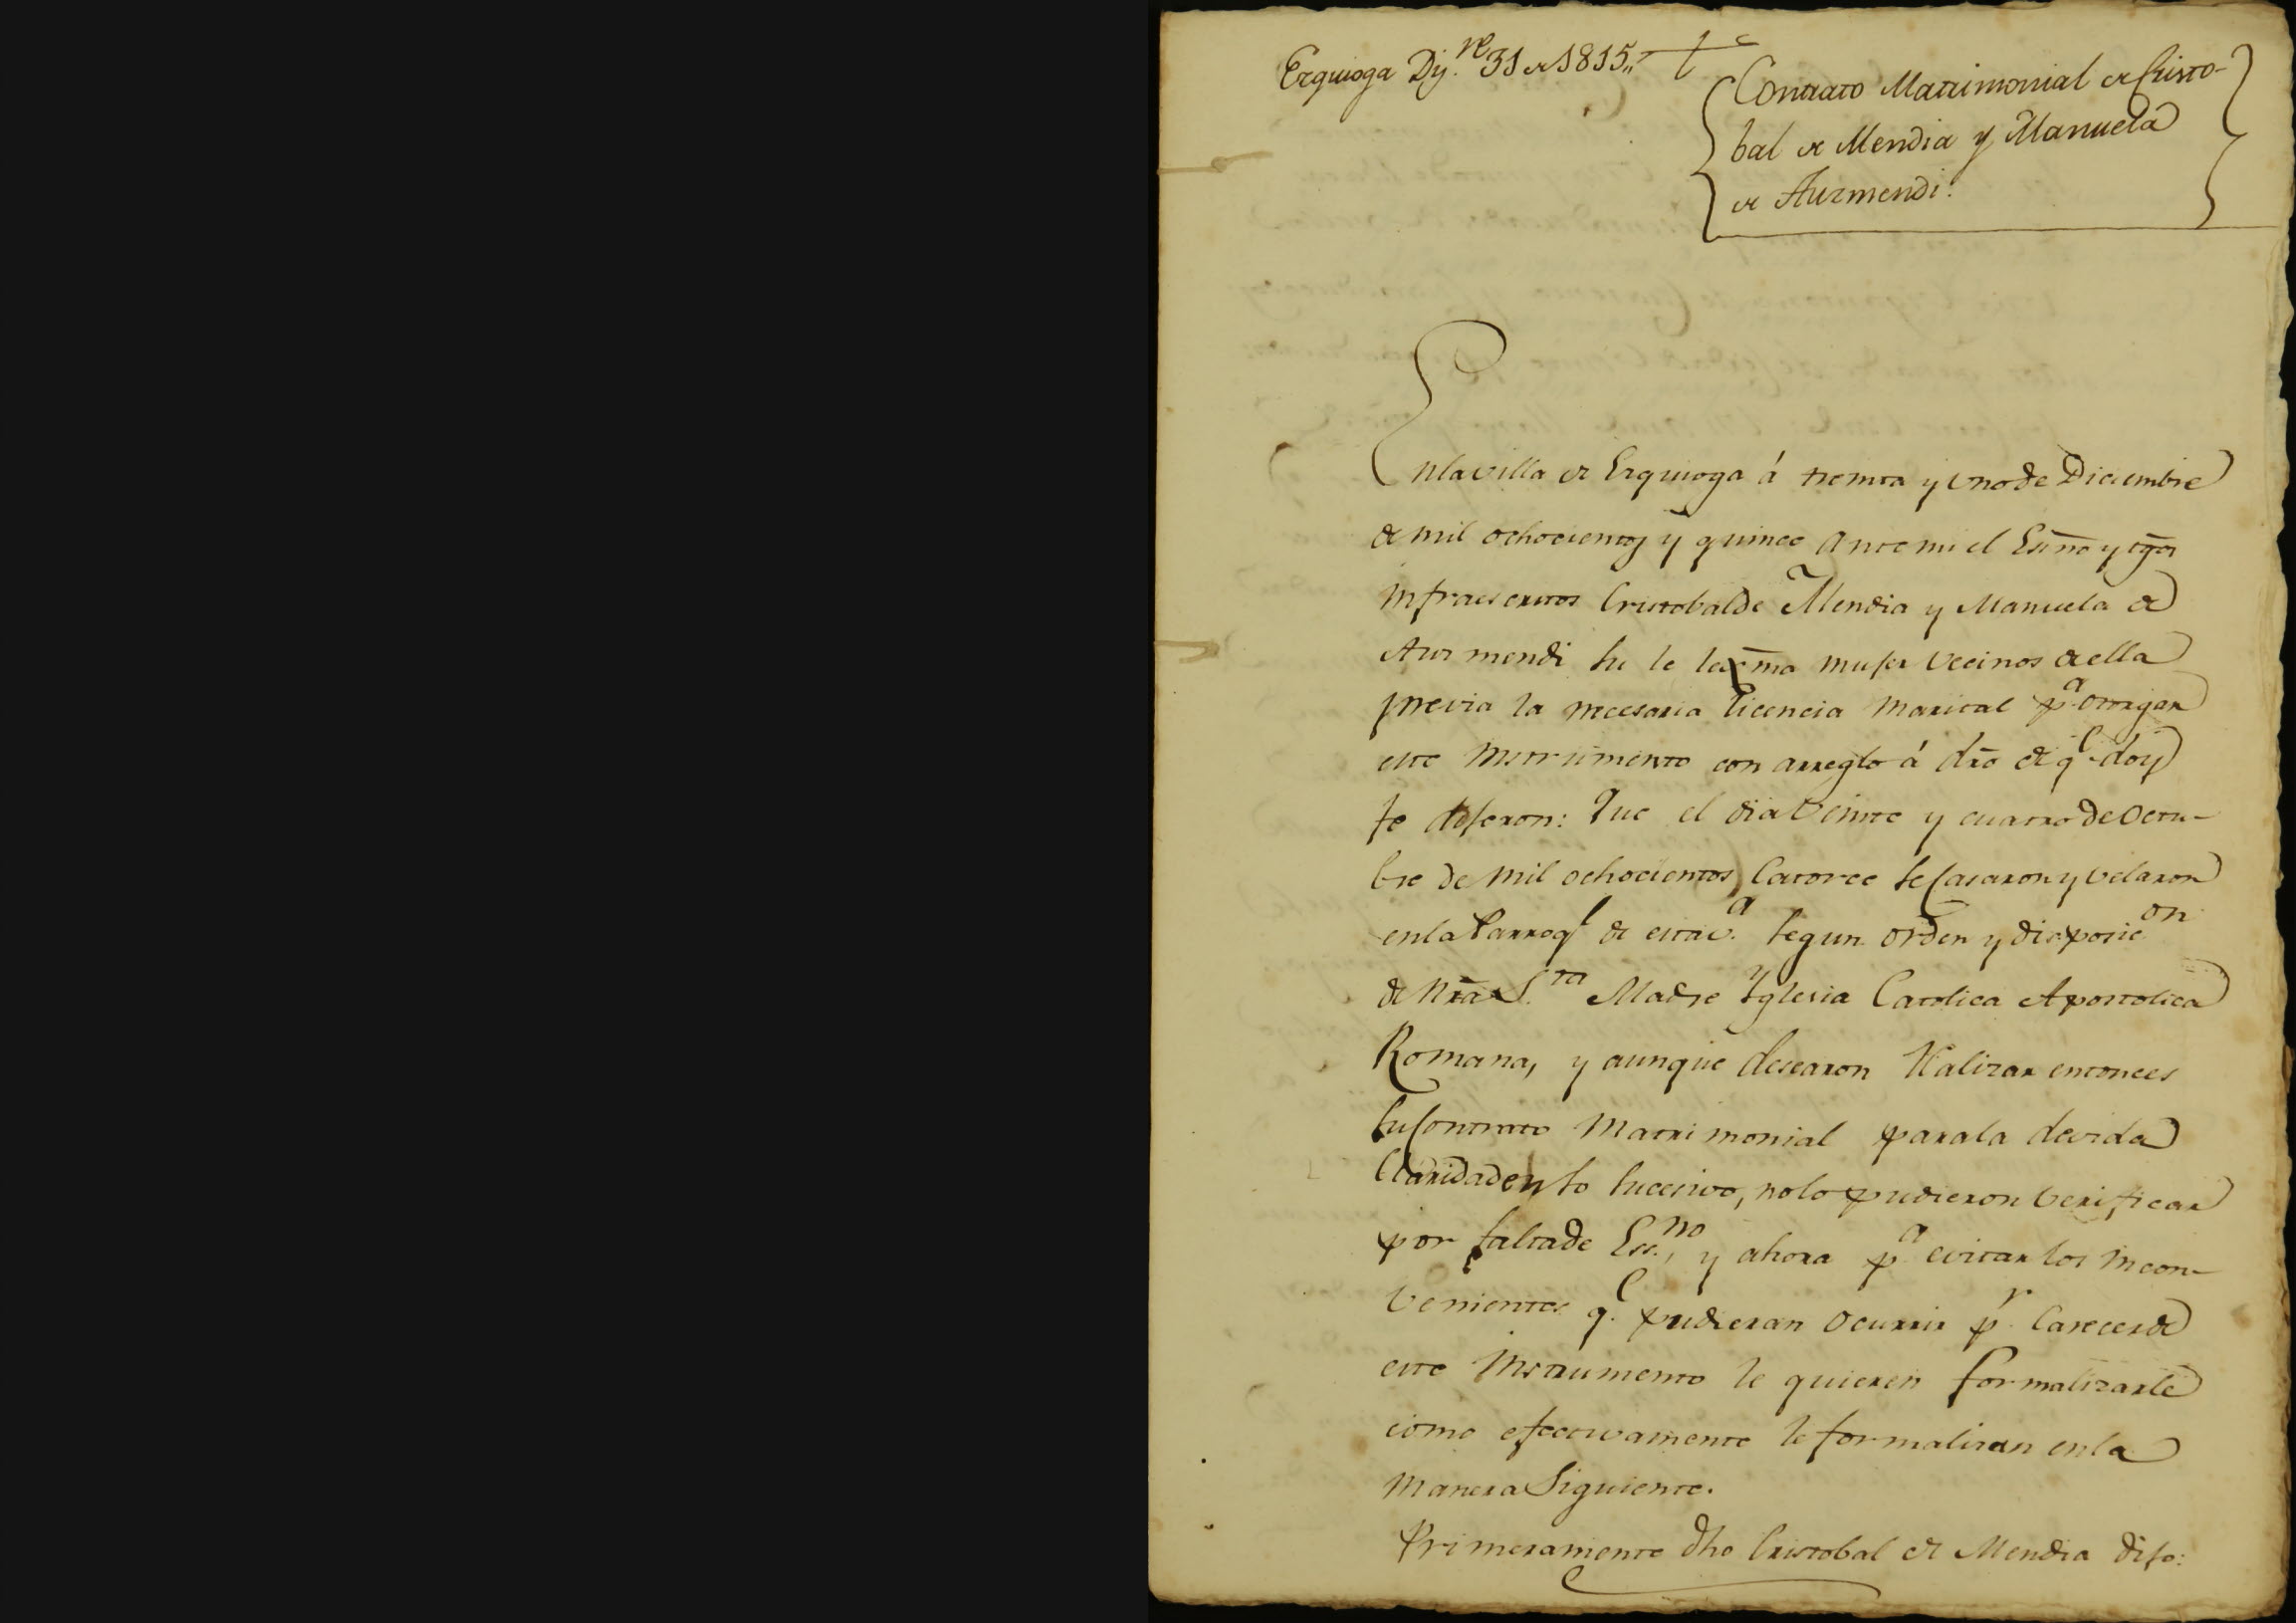 Ezquioga Dij.re 31 de 1815,,
Contrato Matrimonial de Cristo-
bal de Mendia y Manuela
de Aurmendi.
En la villa de Ezquioga á treinta y uno de Diciembre
de mil ochocientos y quince ante mi el Esno y tgos
infraescritos Cristobal de Mendia y Manuela de
Aurmendi su lexma muger vecinos de ella
previa la necesaria licencia marital pa otorgar
este instrumento con arreglo á dro de qe doy
fe digeron: Que el dia veinte y cuatro de Octu-
bre de mil ochocientos Catorce se casaron y velaron
en la Parroql de esta v.a segun orden y disposicon
de Nra S.ta Madre Yglesia Catolica Apostolica
Romana, y aunque desearon realizar entonces
su contrato Matrimonial para la devida
Claridad en lo sucesivo, no lo pudieron verificar
por falta de Ess.no, y ahora pa evitar los incon-
venientes q.e pudieran ocurrir pr carecer de
este instrumento le quieren formalizarle
como efectivamente le formalizan en la
manera siguiente.
Primeramente dho Cristobal de Mendia dijo: